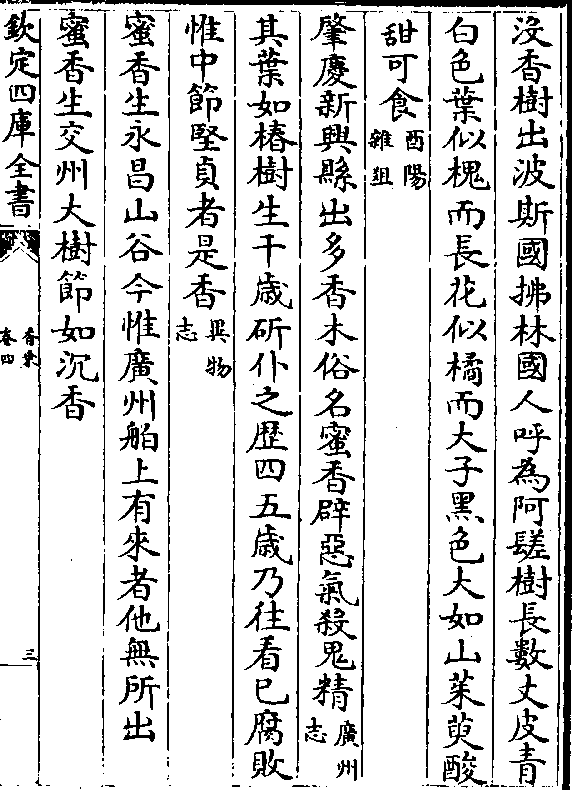 没香樹出波斯國拂林國人呼為阿䰉樹長數丈皮青
白色葉似槐而長花似橘而大子黑色大如山茱萸酸
甜可食酉陽雜俎
肇慶新興縣出多香木俗名蜜香辟惡氣殺鬼精廣州志
其葉如椿樹生千歲斫仆之歷四五歲乃往看已腐敗
惟中節堅貞者是香異物志
蜜香生永昌山谷今惟廣州舶上有來者他無所出
蜜香生交州大樹節如沉香
欽定四庫全書
香乘
卷四
三